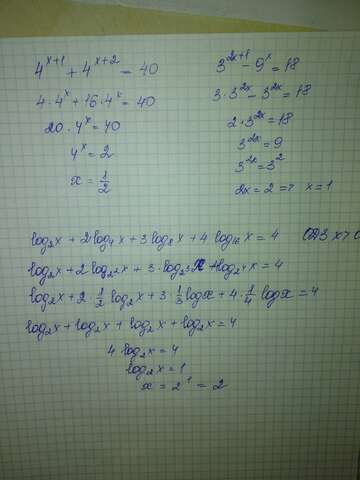 4^{x+1} + 4^{x+2} = 40
4·4^x + 16·4^x = 40
20·4^x = 40
4^x = 2
x = 1/2
3^{2x+1} - 9^x = 18
3·3^{2x} - 3^{2x} = 18
2·3^{2x} = 18
3^{2x} = 9
3^{2x} = 3^2
2x = 2 => x = 1
log_2 x + 2 log_4 x + 3 log_8 x + 4 log_16 x = 4 ОДЗ x>0
log_2 x + 2 log_{2^2} x + 3·log_{2^3} x + log_{2^4} x = 4
log_2 x + 2·1/2 log_2 x + 3·1/3 log x + 4·1/4 log x = 4
log_2 x + log_2 x + log_2 x + log_2 x = 4
4 log_2 x = 4
log_2 x = 1
x = 2^1 = 2